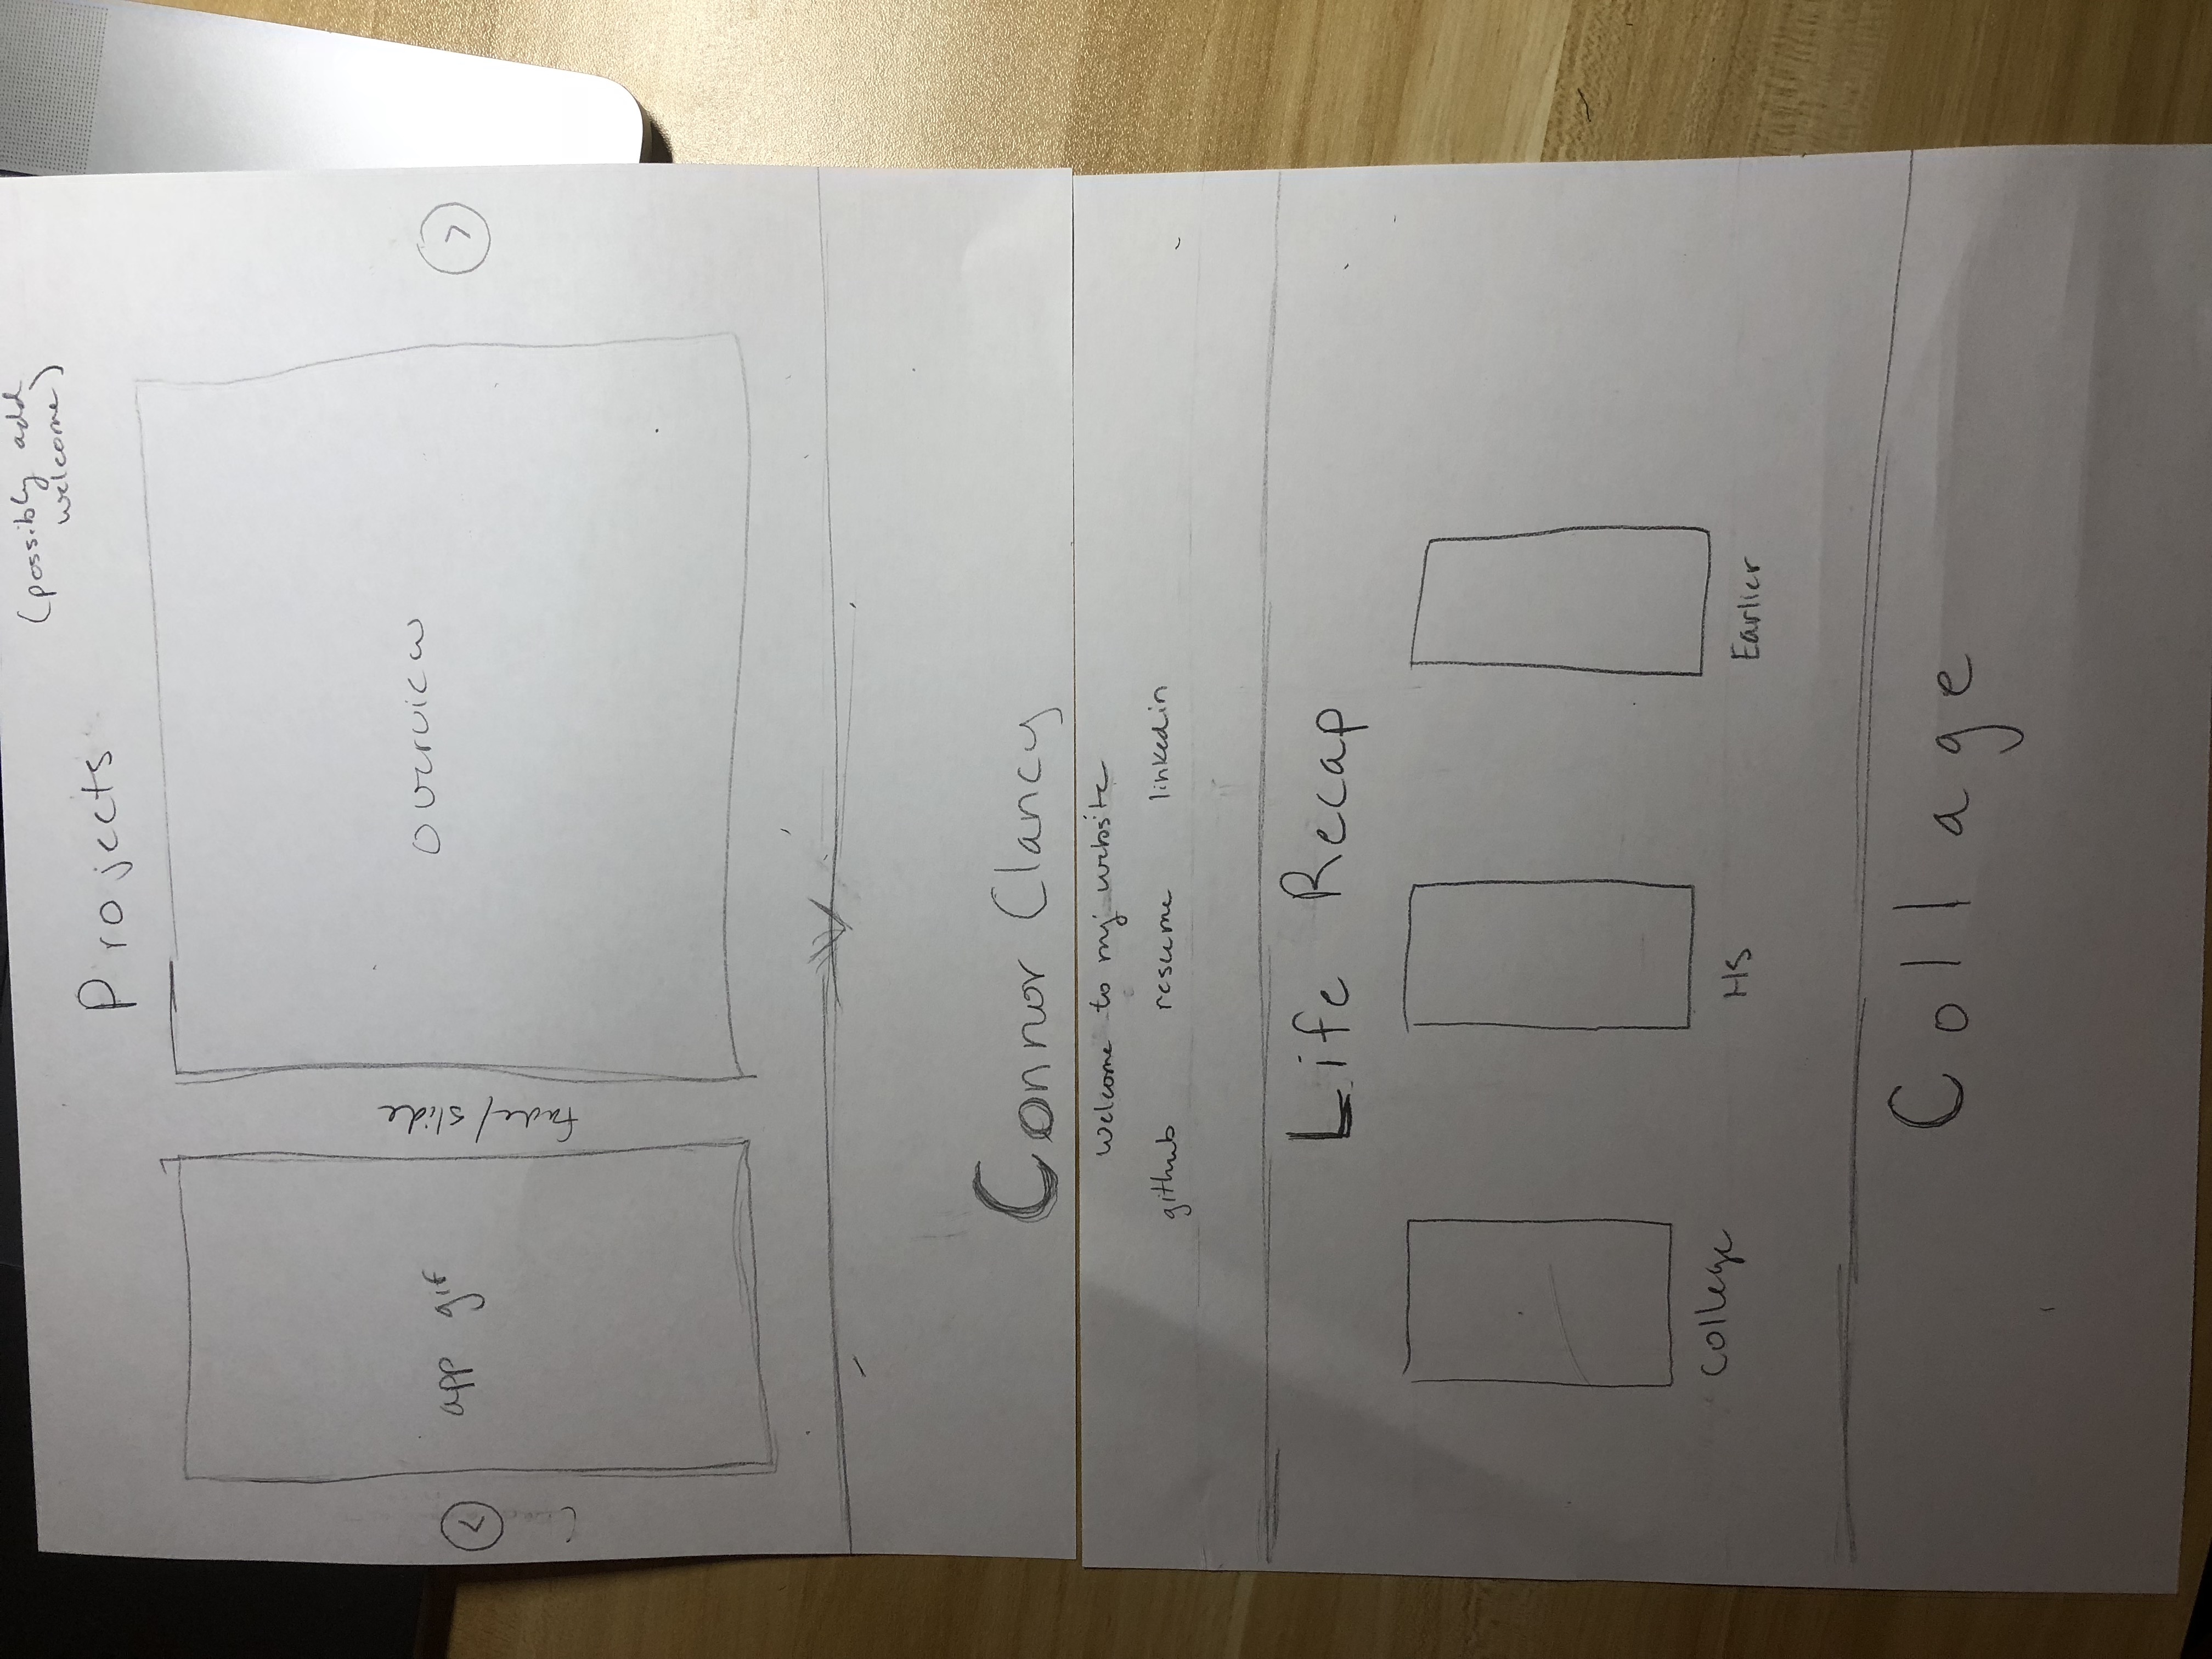 (possibly add
welcome)
Projects
<
app gif
fade/slide
overview
>
Connor Clancy
welcome to my website
github resume linkedin
Life Recap
College
HS
Earlier
Collage